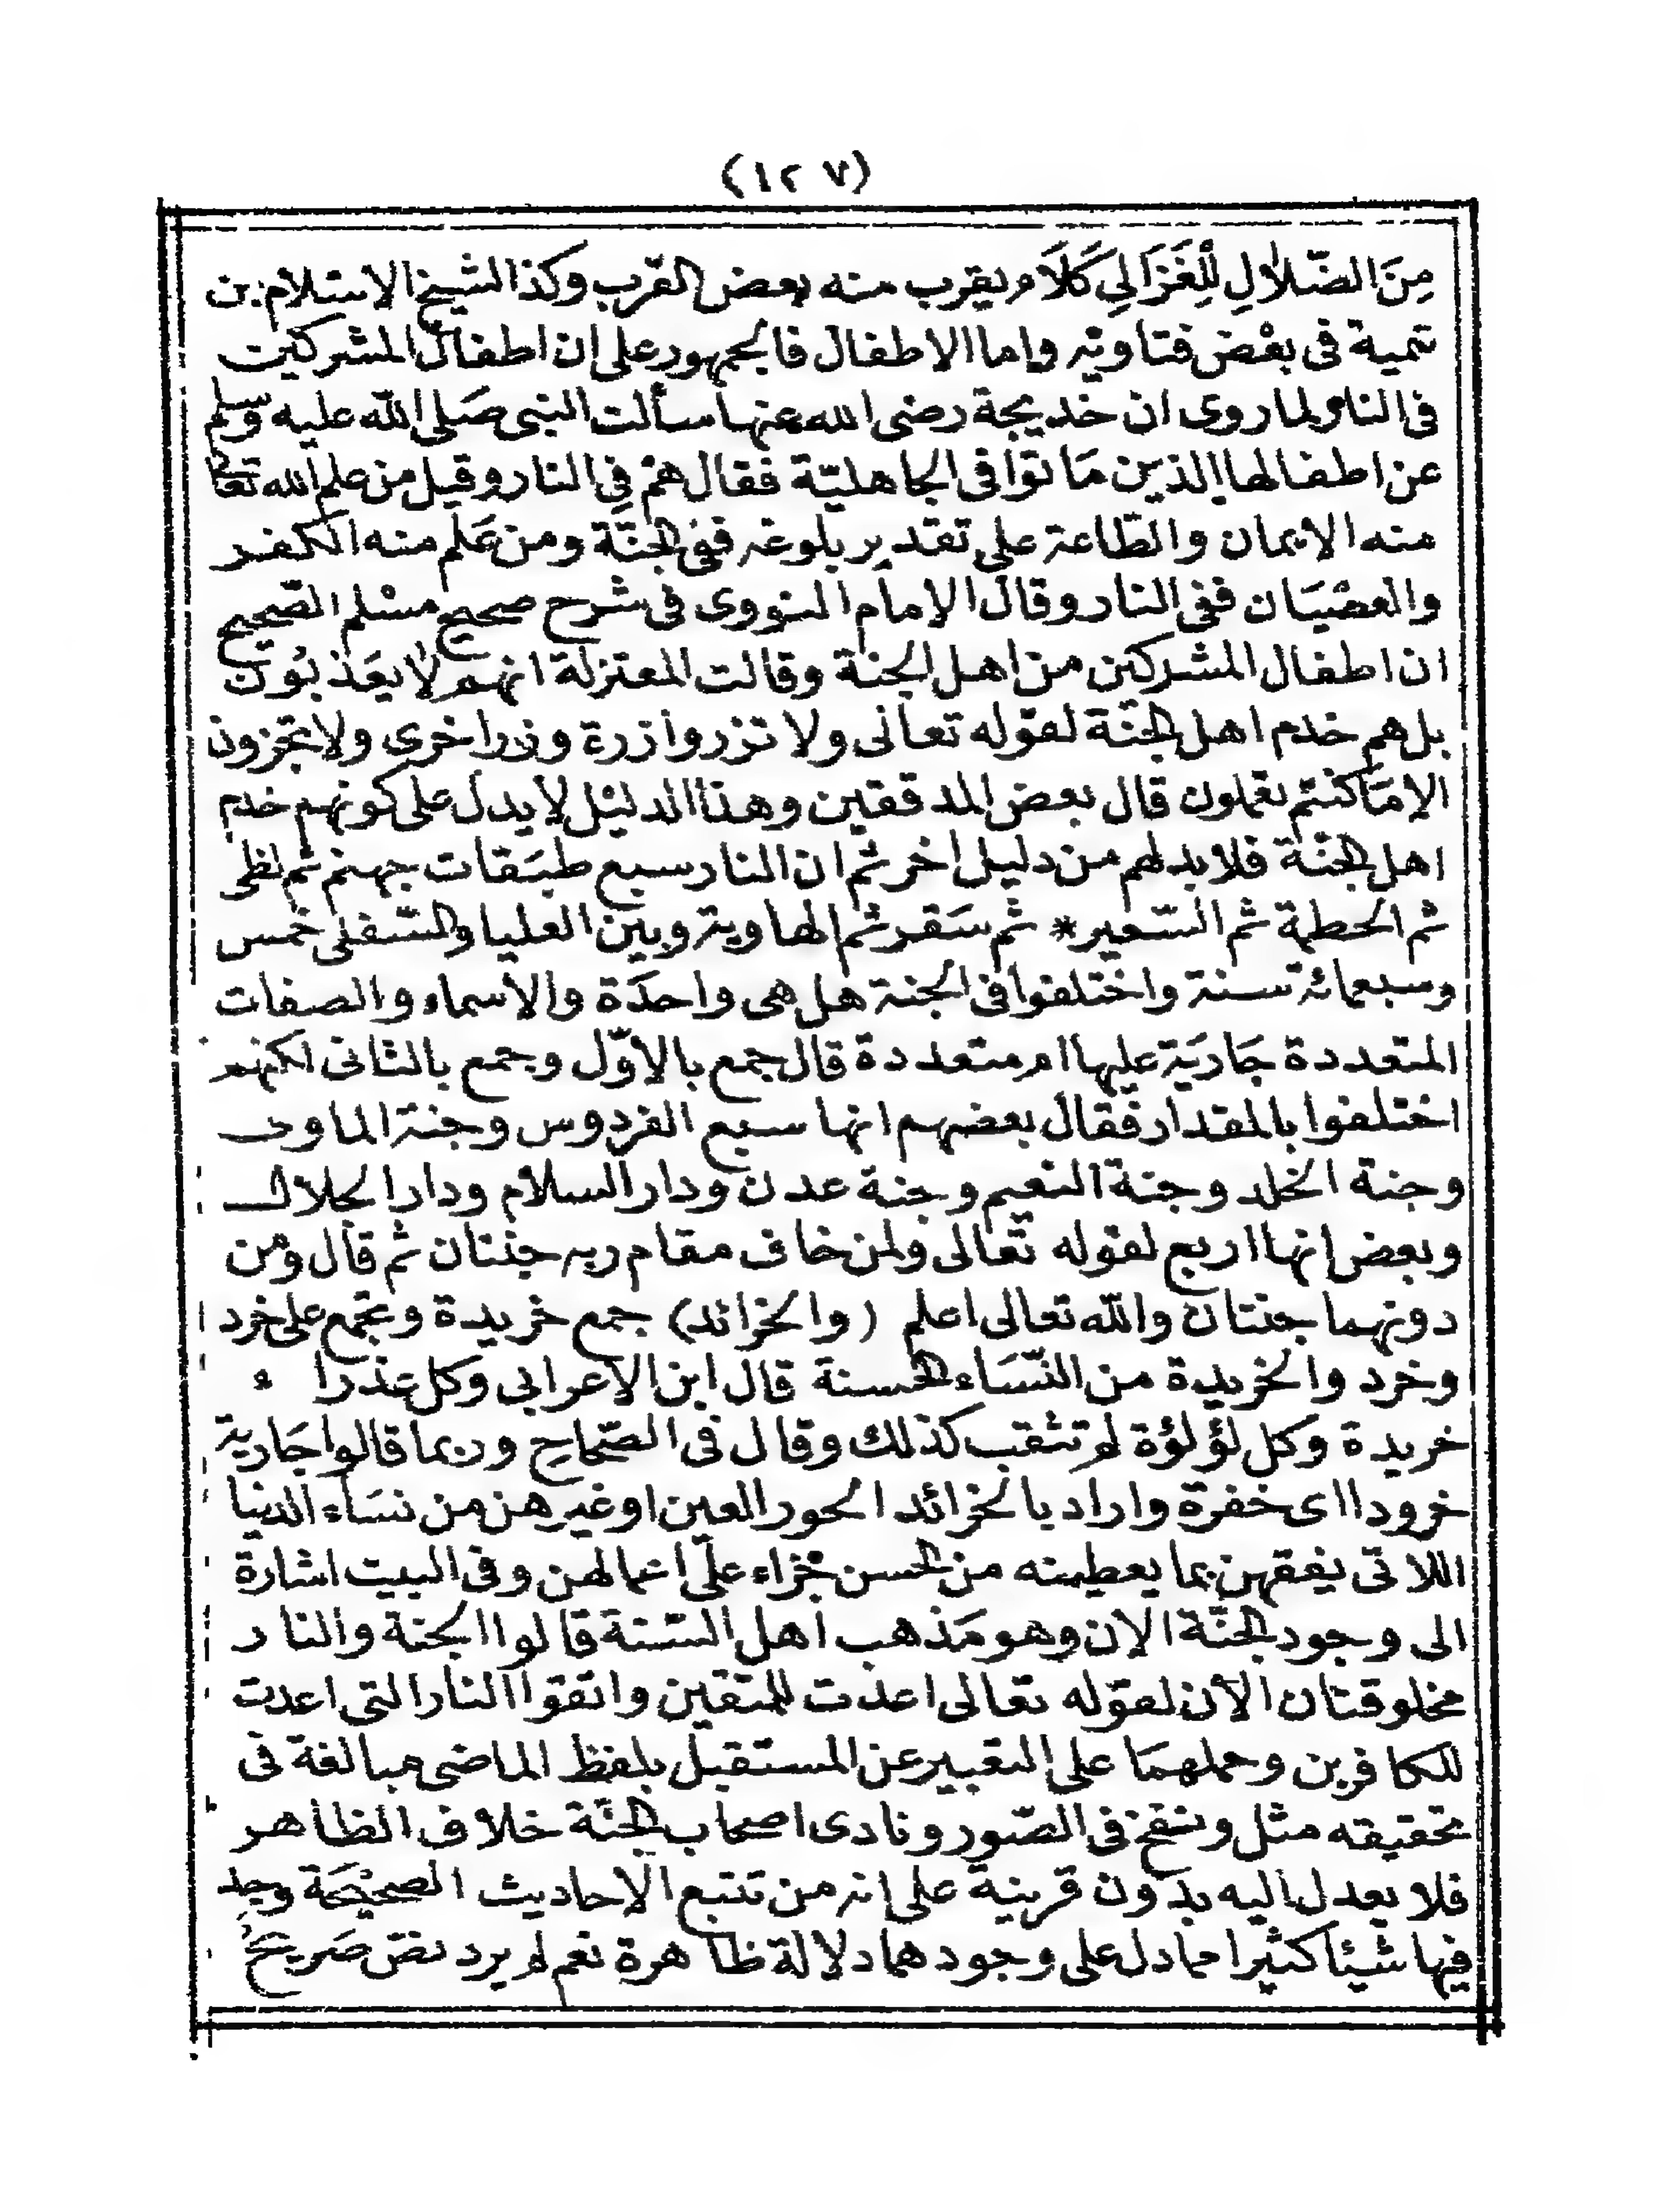 (١٢٧)
مِنَ الضّلالِ لِلْغَزَالِي كَلَام يقرب منه بعض القرب وكذا الشيخ الاسلام بن
تيمية فى بعْض فتاويه واما الاطفال فالجمهور على ان اطفال المشركين
فى النار لما روى ان خديجة رضى الله عنها سألت النبى صَلى الله عليه وسلم
عن اطفالها الذين مَاتوا فى الجاهليّة فقال همْ فِى النار وقيل من علم الله تعالى
منه الايمان والطّاعة على تقدير بلوغه ففى الجنّة ومن عَلم منه الكفر
والعصْيَان ففى النار وقال الامام النووى فى شرح صحيح مسْلم الصّحيح
ان اطفال المشركين من اهل الجنة وقالت المعتزلة انهم لا يعَذبُون
بل هم خدم اهل الجنّة لقوله تعالى ولا تزر وازرة وزر اخرى ولا تجزون
الا مَا كنتم تعملون قال بعض المدققين وهذا الدليْل لا يدل على كونهم خدم
اهل الجنّة فلا بد لهم من دليل اخر ثم ان النار سبع طبَقات جهنم ثم لظى
ثم الحطمة ثم السّعير * ثم سَقر ثم الهاوية وبين العليا والسّفلى خمس
وسبعمائة سنة واختلفوا فى الجنة هل هى واحدَة والاسماء والصفات
المتعددة جَاريَة عليها ام متعددة قال جمع بالاوّل وجمع بالثانى لكنهم
اختلفوا بالمقدار فقال بعضهم انها سبع الفردوس وجنة الماوى
وجنة الخلد وجنة النعيم وجنة عدن ودار السلام ودار الجلال
وبعض انها اربع لقوله تعالى ولمن خاف مقام ربه جنتان ثم قال ومن
دونهما جنتان والله تعالى اعلم (والخرائد) جمع خريدة وتجمع على خرد
وخرد والخريدة من النّسَاء الحسنة قال ابن الاعرابى وكل عذراء
خريدة وكل لؤلؤة لم تثقب كذلك وقال فى الصّحاح وربما قالوا جَارية
خرودا اى خفرة واراد بالخرائد الحور العين او غيرهن من نسَاء الدنيا
اللاتى يفقهن بما يعطينه من الحسن جزاء على اعمالهن وفى البيت اشارة
الى وجود الجنّة الان وهو مَذهب اهل السّنة قالوا الجنة والنار
مخلوقتان الآن لقوله تعالى اعدت للمتقين واتقوا النار التى اعدت
للكافرين وحملهمَا على التعبير عن المستقبل بلفظ الماضى مبالغة فى
تحقيقه مثل ونفخ فى الصّور ونادى اصحاب الجنّة خلاف الظاهر
فلا يعدل اليه بدون قرينة على انه من تتبع الاحاديث الصحيْحَة وجد
فيها شيْئا كثيرا مما دل على وجودهما دلالة ظاهرة نعم لم يرد نصّ صَريحٌ